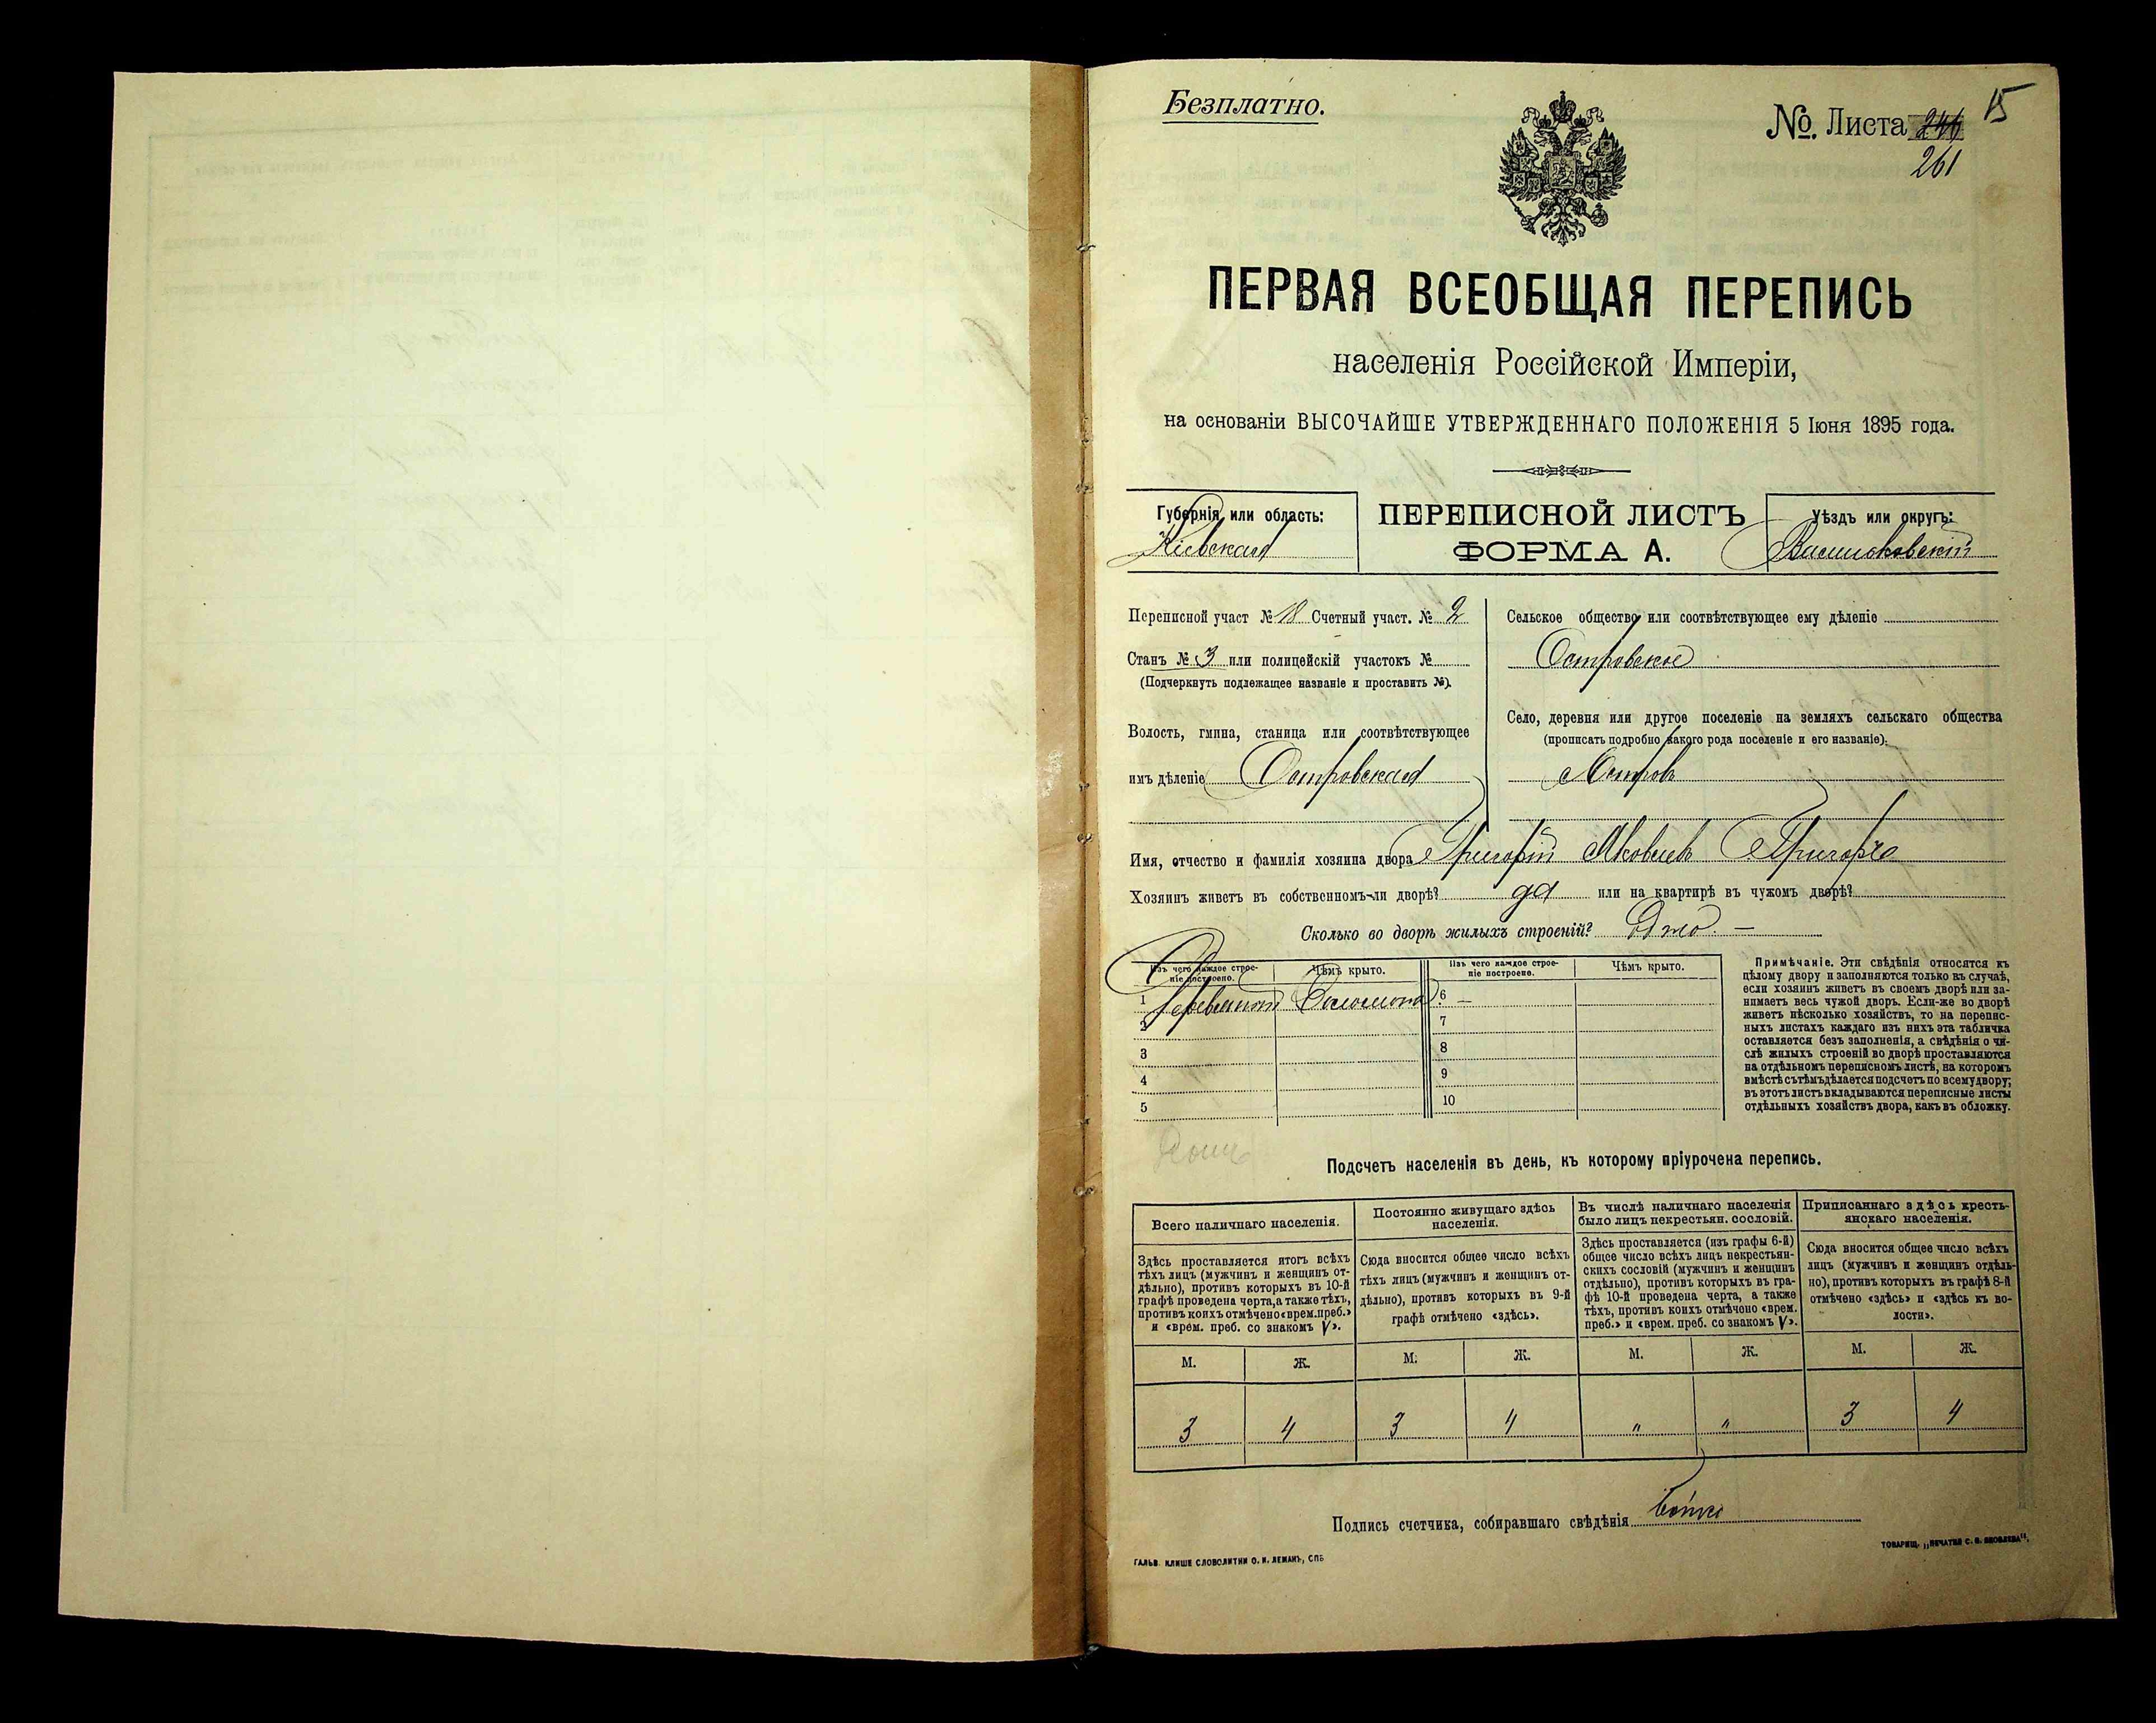 Безплатно.
15
№. Листа 246
261
ПЕРВАЯ ВСЕОБЩАЯ ПЕРЕПИСЬ
населенія Россійской Имперіи,
на основаніи ВЫСОЧАЙШЕ УТВЕРЖДЕННАГО ПОЛОЖЕНІЯ 5 Іюня 1895 года.
Губернія или область:
Кіевская
ПЕРЕПИСНОЙ ЛИСТЪ
ФОРМА А.
Уѣздъ или округъ:
Васильковскій
Переписной участ № 18 Счетный участ. № 2
Станъ № 3 или полицейскій участокъ №
(Подчеркнуть подлежащее названіе и проставить №).
Волость, гмина, станица или соотвѣтствующее
имъ дѣленіе Островская
Сельское общество или соотвѣтствующее ему дѣленіе
Островское
Село, деревня или другое поселеніе на земляхъ сельскаго общества
(прописать подробно какого рода поселеніе и его названіе).
Островъ
Имя, отчество и фамилія хозяина двора Григорій Яковлевъ
Хозяинъ живетъ въ собственномъ-ли дворѣ? да или на квартирѣ въ чужомъ дворѣ?
Сколько во дворѣ жилыхъ строеній? Одно. —
Изъ чего каждое строе-
ніе построено.
Чѣмъ крыто.
Изъ чего каждое строе-
ніе построено.
Чѣмъ крыто.
1 Соломою 6 —
2 7
3 8
4 9
5 10
Примѣчаніе. Эти свѣдѣнія относятся къ
цѣлому двору и заполняются только въ случаѣ,
если хозяинъ живетъ въ своемъ дворѣ или за-
нимаетъ весь чужой дворъ. Если-же во дворѣ
живетъ нѣсколько хозяйствъ, то на перепис-
ныхъ листахъ каждаго изъ нихъ эта табличка
оставляется безъ заполненія, а свѣдѣнія о чи-
слѣ жилыхъ строеній во дворѣ проставляются
на отдѣльномъ переписномъ листѣ, на которомъ
вмѣстѣ съ тѣмъ дѣлается подсчетъ по всему двору;
въ этотъ листъ вкладываются переписные листы
отдѣльныхъ хозяйствъ двора, какъ въ обложку.
Подсчетъ населенія въ день, къ которому пріурочена перепись.
Всего наличнаго населенія.
Здѣсь проставляется итогъ всѣхъ
тѣхъ лицъ (мужчинъ и женщинъ от-
дѣльно), противъ которыхъ въ 10-й
графѣ проведена черта, а также тѣхъ,
противъ коихъ отмѣчено «врем. преб.»
и «врем. преб. со знакомъ V».
Постоянно живущаго здѣсь
населенія.
Сюда вносится общее число всѣхъ
тѣхъ лицъ (мужчинъ и женщинъ от-
дѣльно), противъ которыхъ въ 9-й
графѣ отмѣчено «здѣсь».
Въ числѣ наличнаго населенія
было лицъ некрестьян. сословій.
Здѣсь проставляется (изъ графы 6-й)
общее число всѣхъ лицъ некрестьян-
скихъ сословій (мужчинъ и женщинъ
отдѣльно), противъ которыхъ въ гра-
фѣ 10-й проведена черта, а также
тѣхъ, противъ коихъ отмѣчено «врем.
преб.» и «врем. преб. со знакомъ V».
Приписаннаго здѣсь кресть-
янскаго населенія.
Сюда вносится общее число всѣхъ
лицъ (мужчинъ и женщинъ отдѣль-
но), противъ которыхъ въ графѣ 8-й
отмѣчено «здѣсь» и «здѣсь къ во-
лости».
М. Ж. М. Ж. М. Ж. М. Ж.
3 4 3 4 " " 3 4
Подпись счетчика, собиравшаго свѣдѣнія
ГАЛЬВ. КЛИШЕ СЛОВОЛИТНИ О. И. ЛЕМАНЪ, СПБ
ТОВАРИЩ. „ПЕЧАТНЯ С. П. ЯКОВЛЕВА".